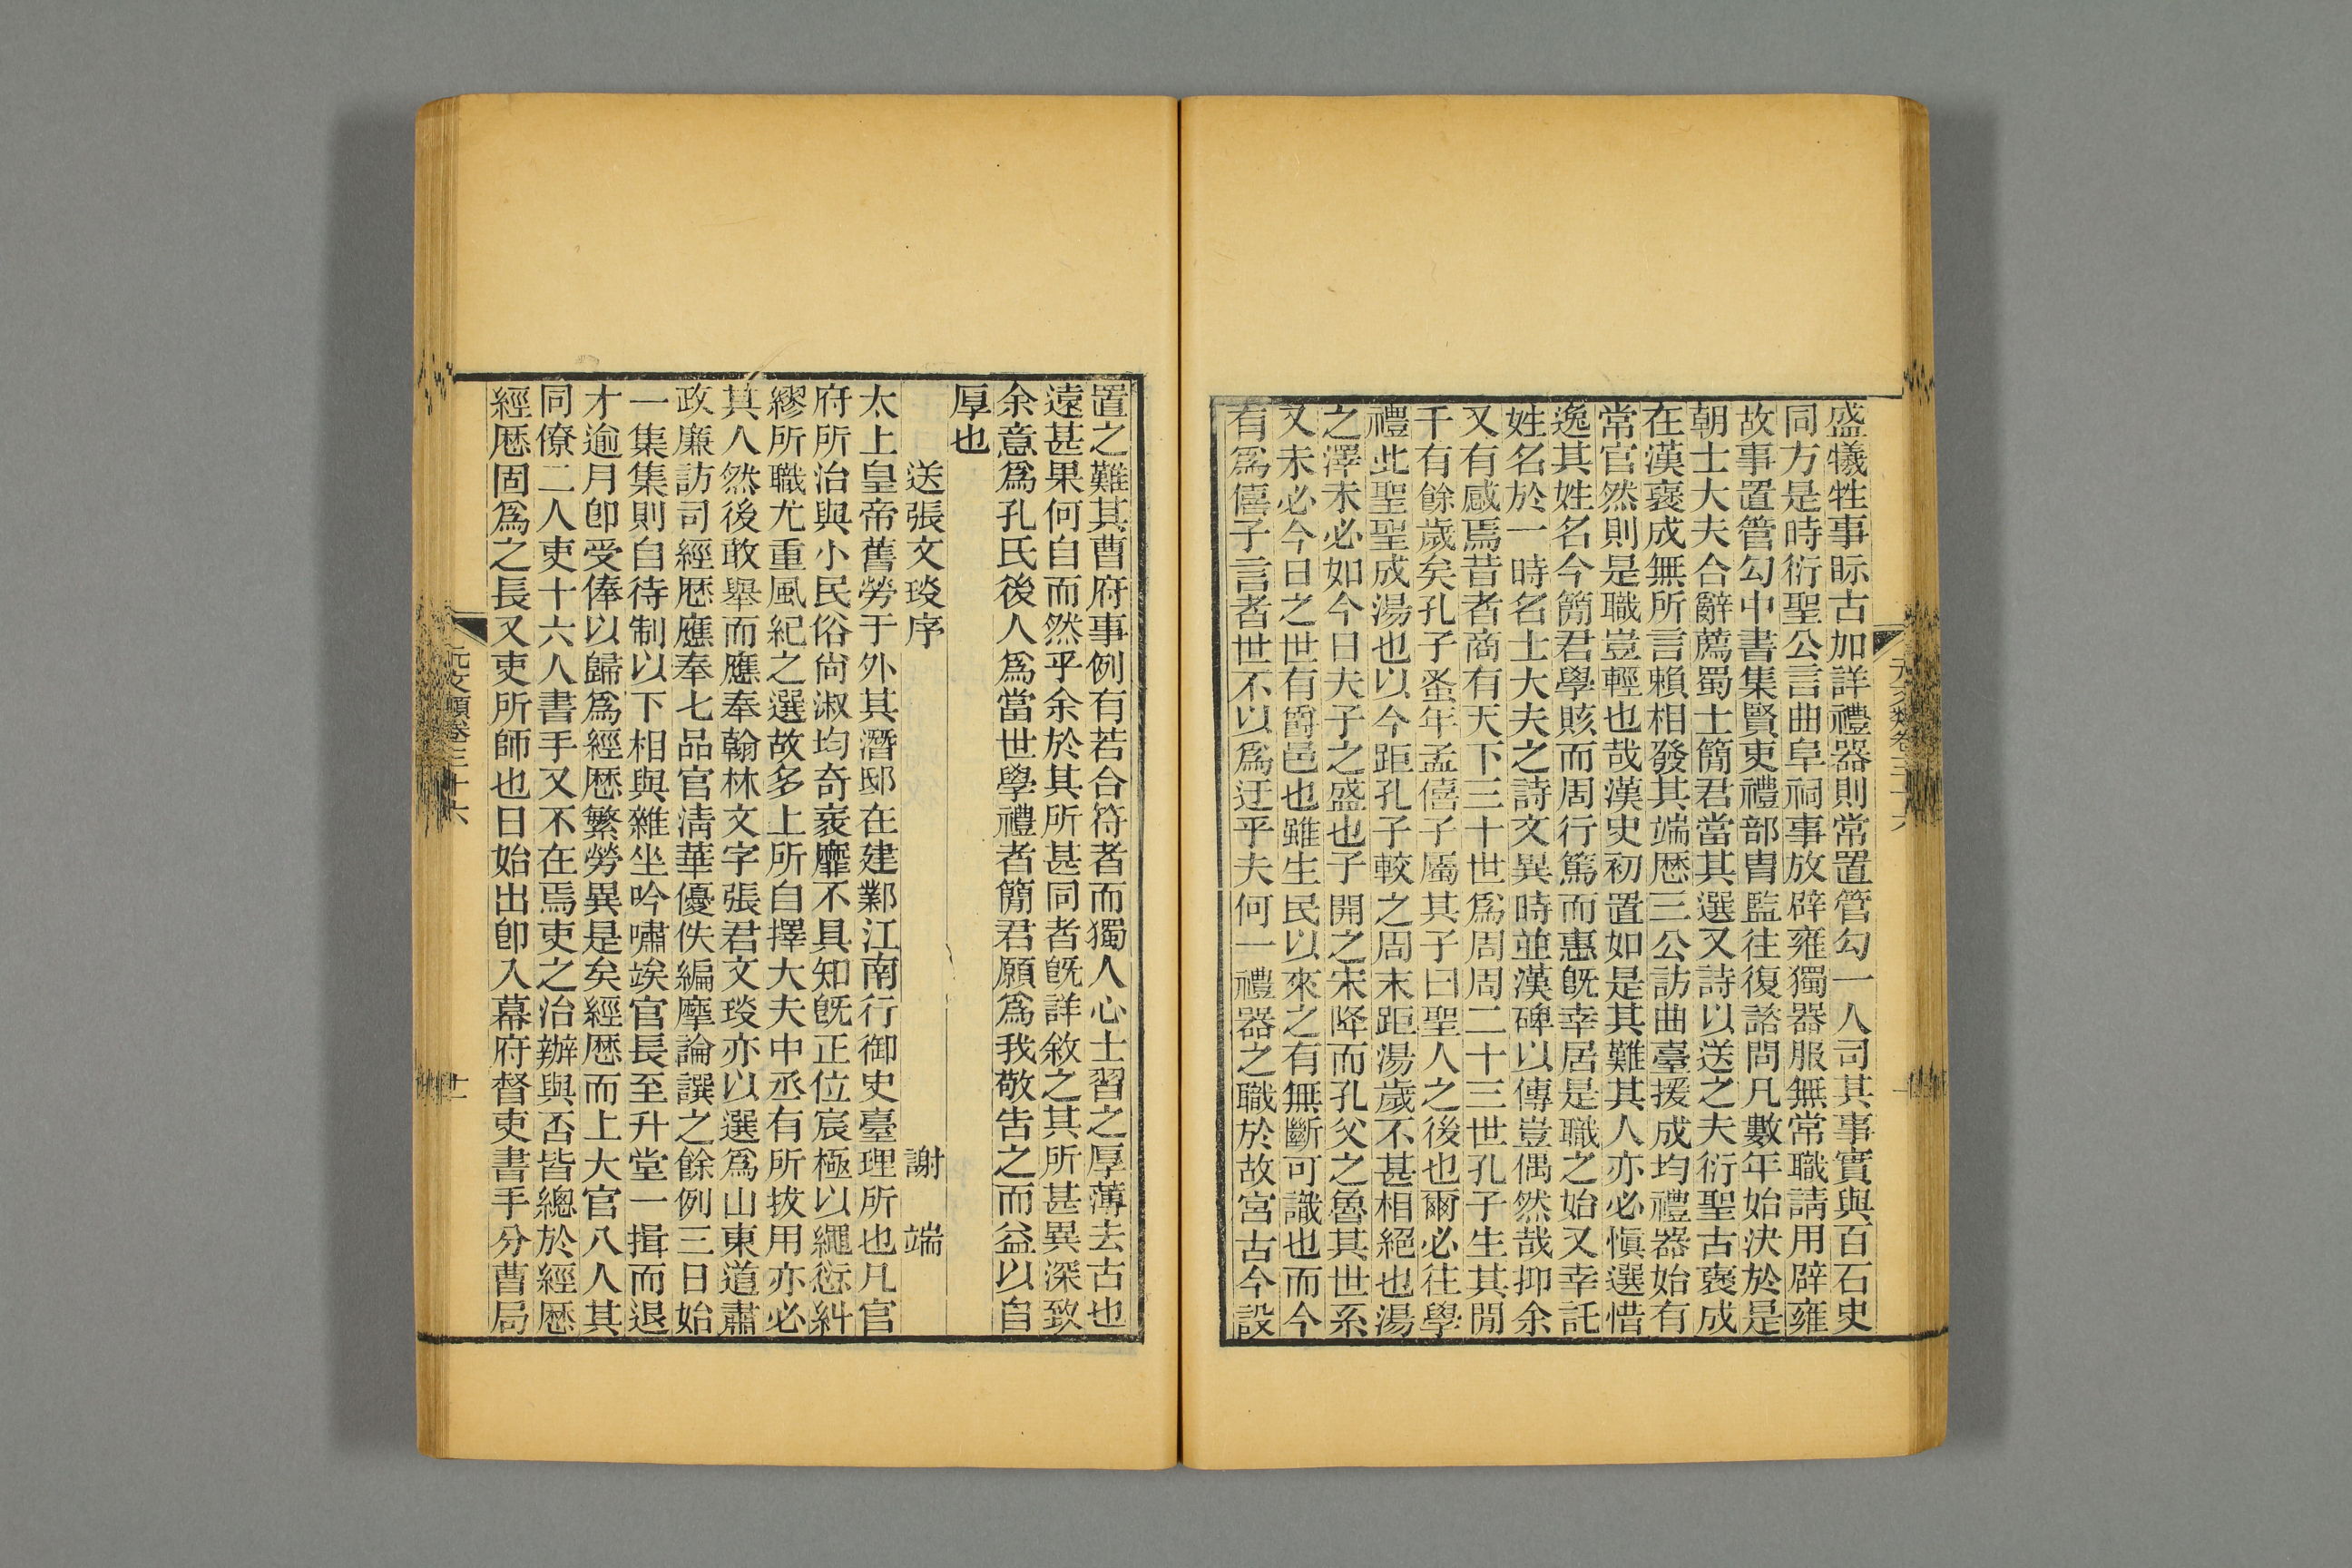 盛犧牲事眎古加詳禮器則常置管勾一人司其事實與百石史
同方是時衍聖公言曲阜祠事放辟雍獨器服無常職請用辟雍
故事置管勾中書集賢吏禮部胄監往復諮問凡數年始決於是
朝士大夫合辭薦蜀士簡君當其選又詩以送之夫衍聖古襃成
在漢襃成無所言賴相發其端歷三公訪曲臺援成均禮器始有
常官然則是職豈輕也哉漢史初置如是其難其人亦必愼選惜
逸其姓名今簡君學賅而周行篤而惠旣幸居是職之始又幸託
姓名於一時名士大夫之詩文異時並漢碑以傳豈偶然哉抑余
又有感焉昔者商有天下三十世爲周周二十三世孔子生其閒
千有餘歲矣孔子蚤年孟僖子屬其子曰聖人之後也爾必往學
禮此聖聖成湯也以今距孔子較之周末距湯歲不甚相絕也湯
之澤未必如今日夫子之盛也子開之宋降而孔父之魯其世系
又未必今日之世有爵邑也雖生民以來之有無斷可識也而今
有爲僖子言者世不以爲迂乎夫何一禮器之職於故宮古今設
置之難其曹府事例有若合符者而獨人心士習之厚薄去古也
遠甚果何自而然乎余於其所甚同者旣詳敘之其所甚異深致
余意爲孔氏後人爲當世學禮者簡君願爲我敬告之而益以自
厚也
送張文琰序 謝 端
太上皇帝舊勞于外其潛邸在建鄴江南行御史臺理所也凡官
府所治與小民俗尙淑均奇袤靡不具知旣正位宸極以繩愆糾
繆所職尤重風紀之選故多上所自擇大夫中丞有所拔用亦必
其人然後敢舉而應奉翰林文字張君文琰亦以選爲山東道肅
政廉訪司經歷應奉七品官淸華優佚編摩論譔之餘例三日始
一集集則自待制以下相與雜坐吟嘯竢官長至升堂一揖而退
才逾月卽受俸以歸爲經歷繁勞異是矣經歷而上大官八人其
同僚二人吏十六人書手又不在焉吏之治辦與否皆總於經歷
經歷固爲之長又吏所師也日始出卽入幕府督吏書手分曹局
元文類卷三十六
十一